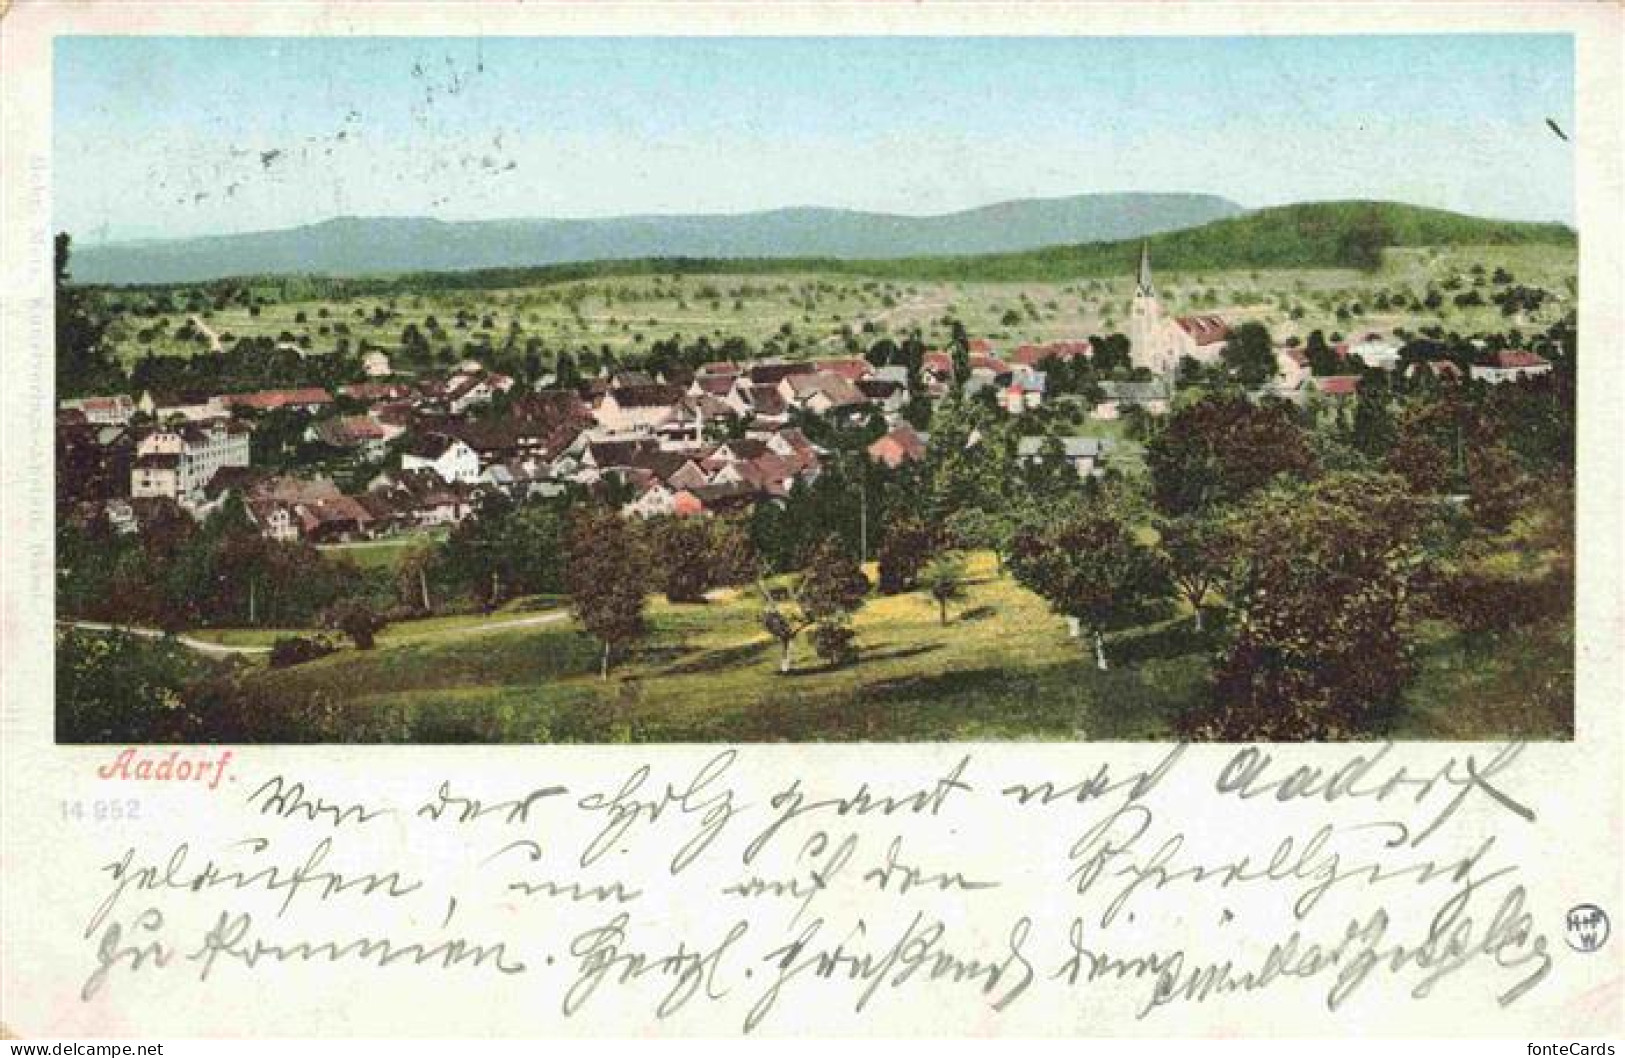 Aadorf.
14 952
Von der Holzgant nach Aadorf
gelaufen, um auf den Schnellzug
zu kommen. Herzl. grüßend dein
H+P
W
www.delcampe.net
fonteCards